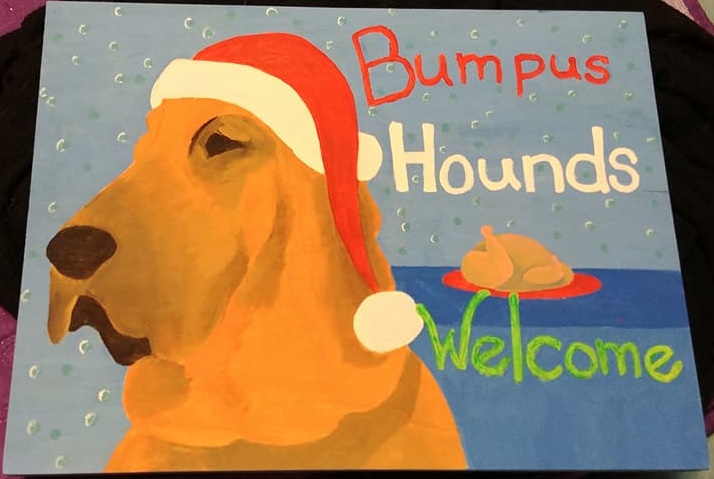 Bumpus
Hounds
Welcome